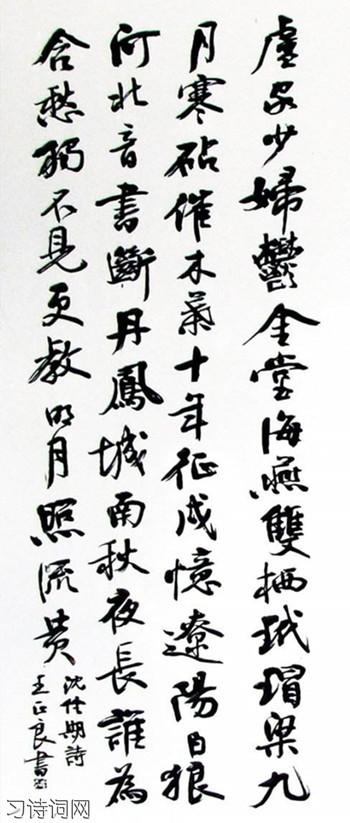 盧家少婦鬱金堂海燕雙栖玳瑁梁九
月寒砧催木葉十年征戍憶遼陽白狼
河北音書斷丹鳳城南秋夜長誰為
含愁獨不見更教明月照流黄
沈佺期詩
王正良書
习诗词网